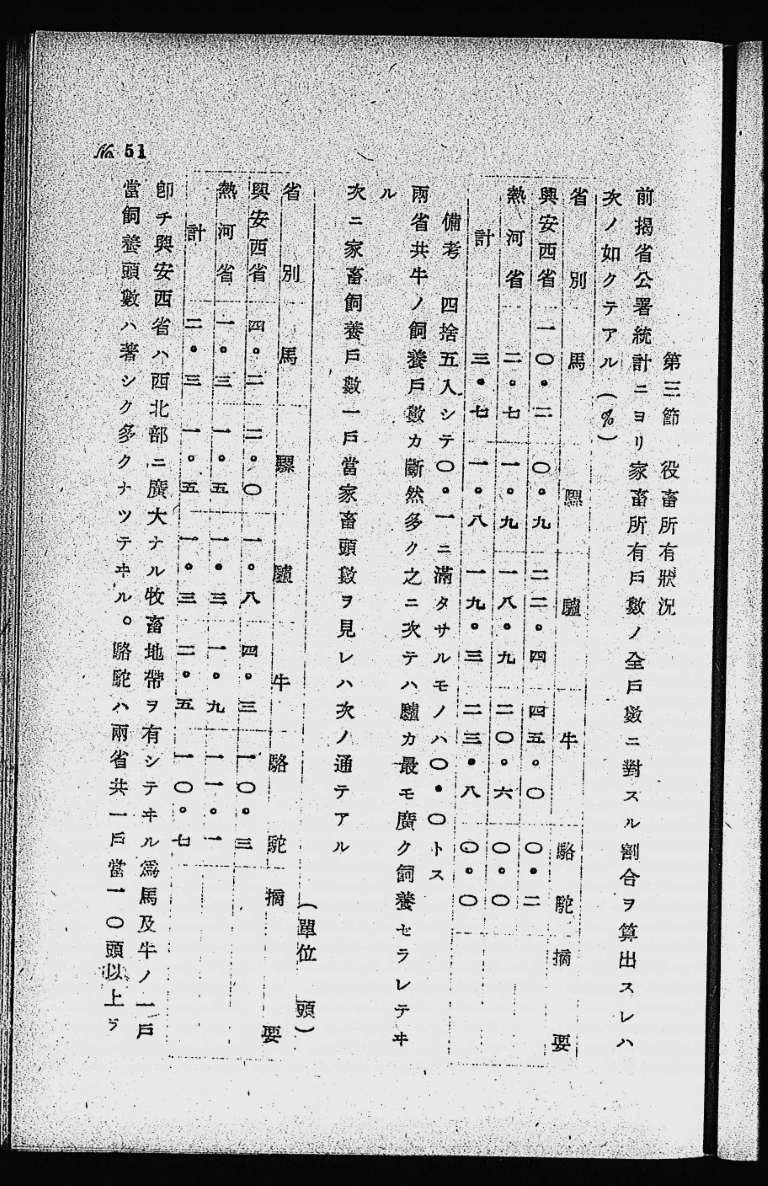 第三節　役畜所有狀況
前揭省公署統計ニヨリ家畜所有戶數ノ全戶數ニ對スル割合ヲ算出スレハ
次ノ如クテアル（%）
省別　馬　騾　驢　牛　駱駝　摘要
興安西省　一〇・二　〇・九　二二・四　四五・〇　〇・二
熱河省　二・七　一・九　一八・九　二〇・六　〇・〇
計　三・七　一・八　一九・三　二三・八　〇・〇
備考　四捨五入シテ〇・一ニ滿タサルモノハ〇・〇トス
兩省共牛ノ飼養戶數カ斷然多ク之ニ次テハ驢カ最モ廣ク飼養セラレテヰ
ル
次ニ家畜飼養戶數一戶當家畜頭數ヲ見レハ次ノ通テアル
（單位　頭）
省別　馬　騾　驢　牛　駱駝　摘要
興安西省　四・二　二・〇　一・八　四・三　一〇・三
熱河省　一・三　一・五　一・三　一・九　一一・一
計　二・三　一・五　一・三　二・五　一〇・七
卽チ興安西省ハ西北部ニ廣大ナル牧畜地帶ヲ有シテヰル爲馬及牛ノ一戶
當飼養頭數ハ著シク多クナツテヰル。駱駝ハ兩省共一戶當一〇頭以上ヲ
No 51